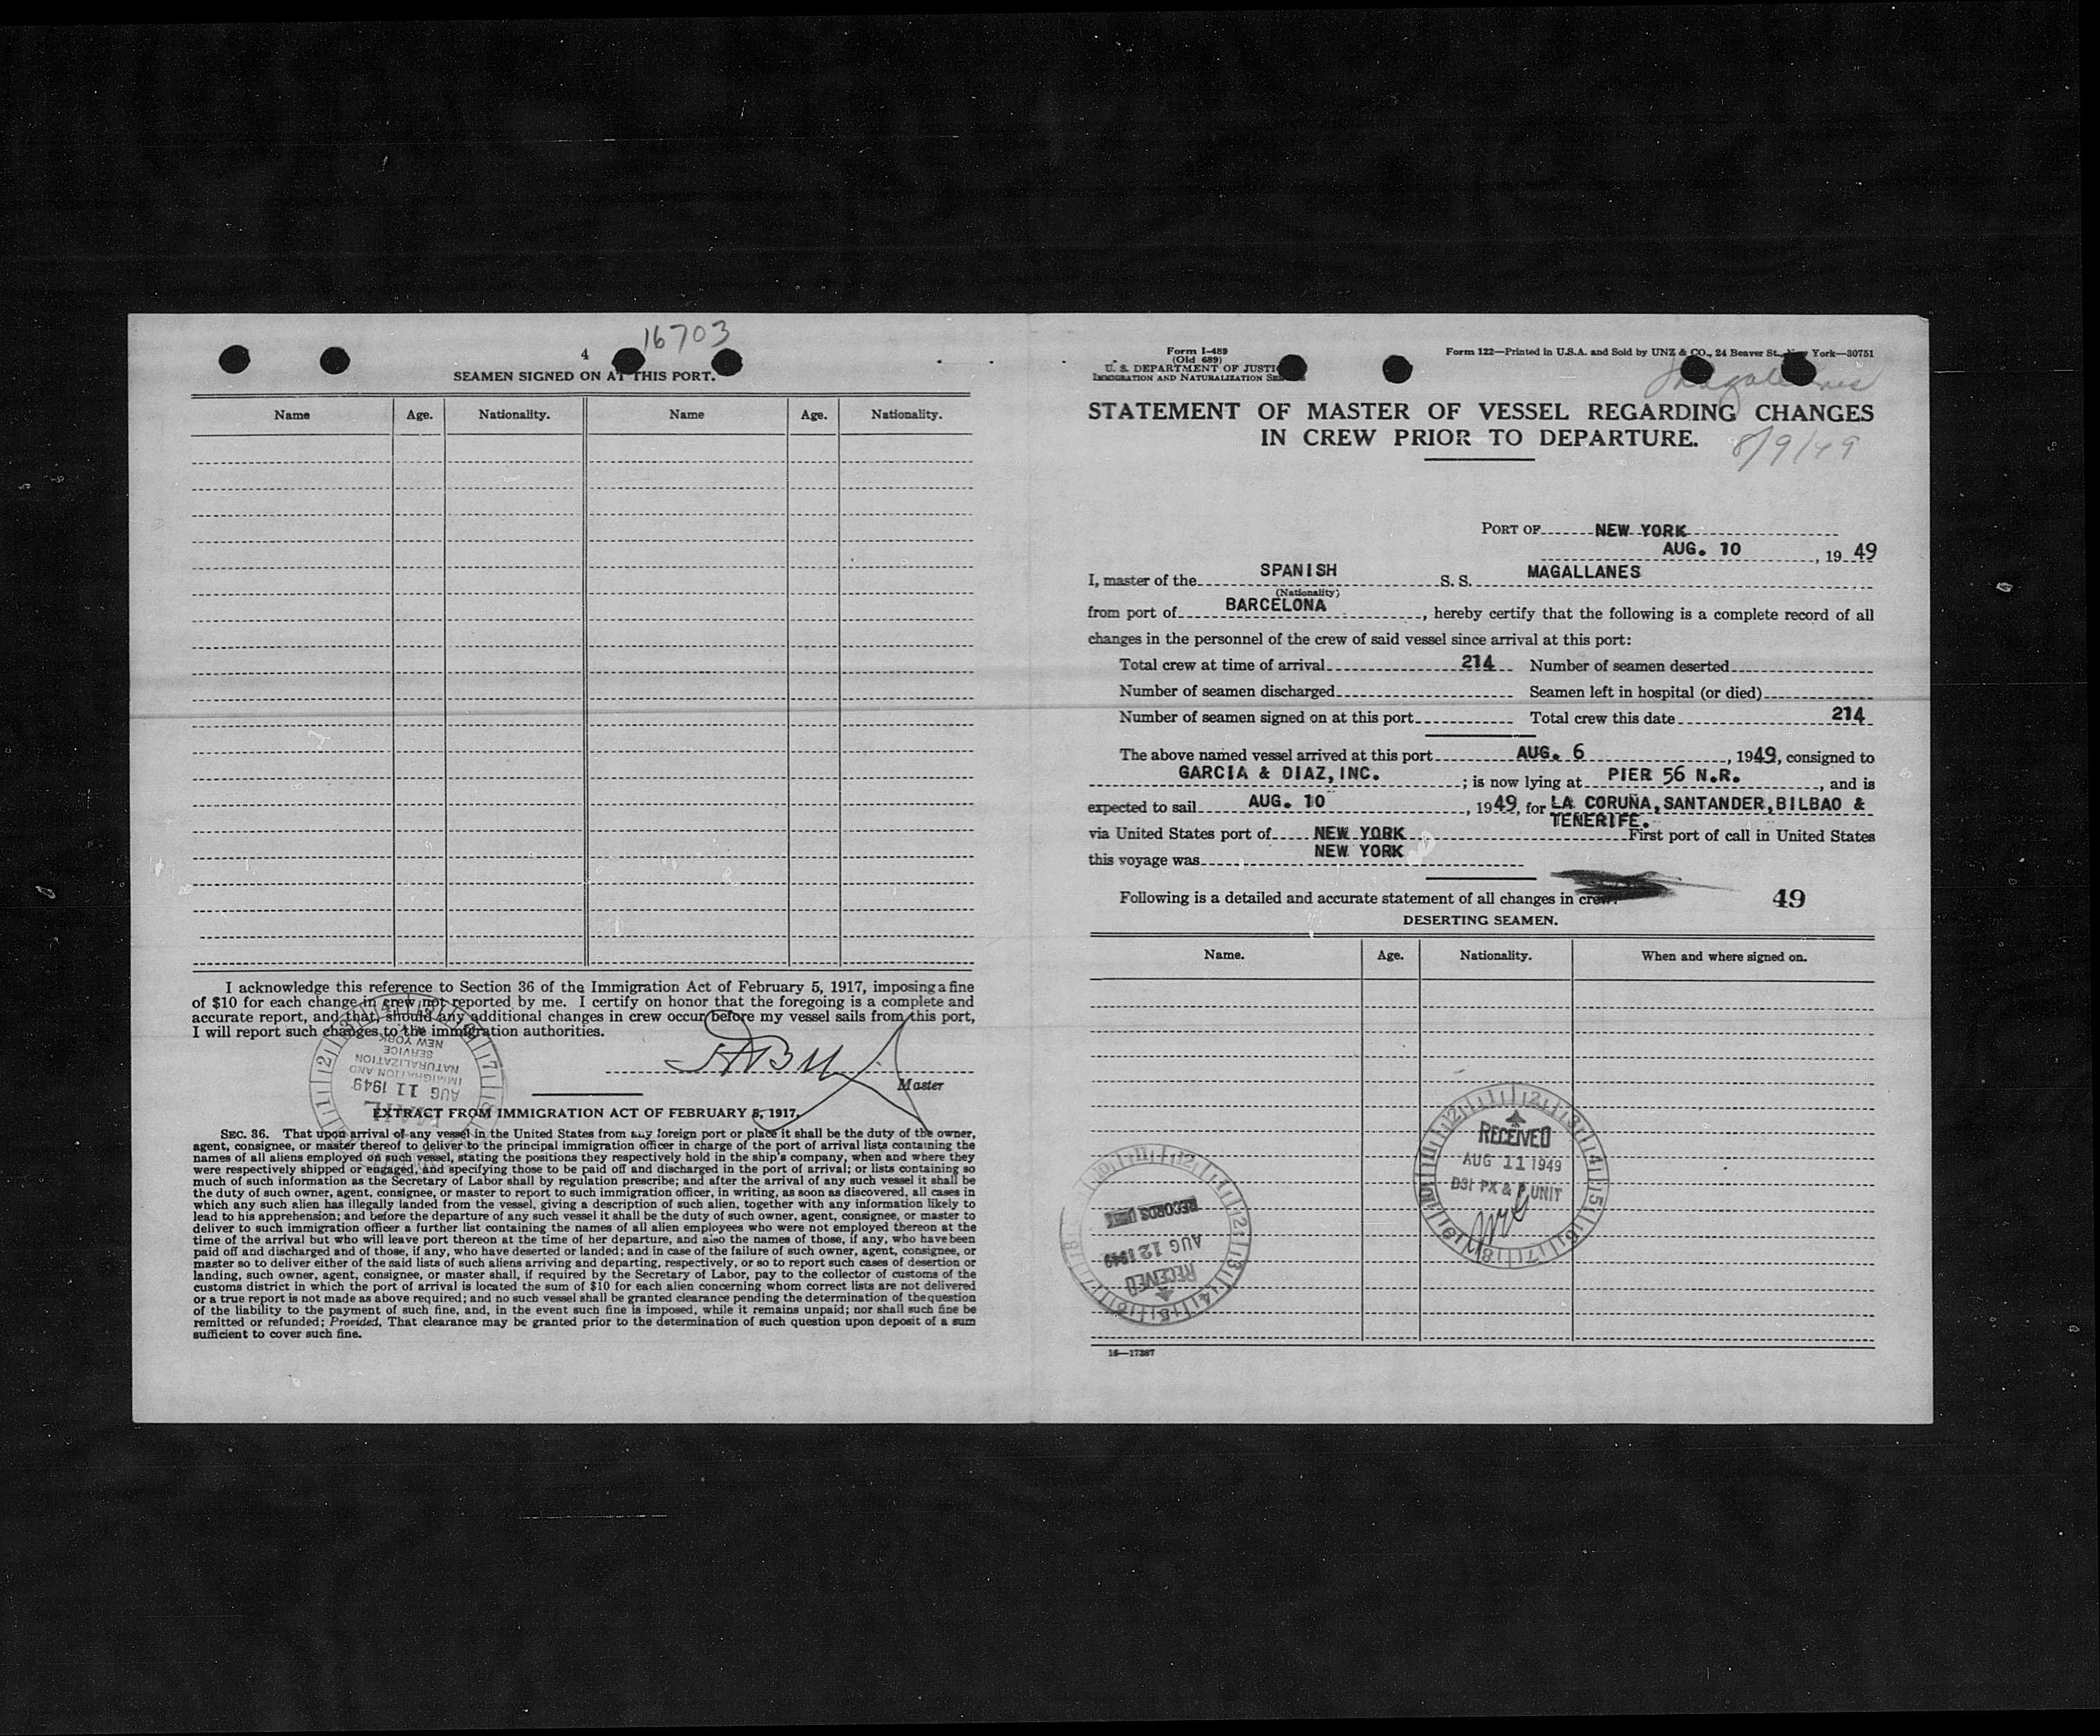 16703
4
SEAMEN SIGNED ON AT THIS PORT.
Name Age. Nationality. Name Age. Nationality.
I acknowledge this reference to Section 36 of the Immigration Act of February 5, 1917, imposing a fine
of $10 for each change in crew not reported by me. I certify on honor that the foregoing is a complete and
accurate report, and that, should any additional changes in crew occur before my vessel sails from this port,
I will report such changes to the immigration authorities.
Master
IMMIGRATION AND
NATURALIZATION
SERVICE
NEW YORK
AUG 11 1949
EXTRACT FROM IMMIGRATION ACT OF FEBRUARY 5, 1917.
SEC. 36. That upon arrival of any vessel in the United States from any foreign port or place it shall be the duty of the owner,
agent, consignee, or master thereof to deliver to the principal immigration officer in charge of the port of arrival lists containing the
names of all aliens employed on such vessel, stating the positions they respectively hold in the ship's company, when and where they
were respectively shipped or engaged, and specifying those to be paid off and discharged in the port of arrival; or lists containing so
much of such information as the Secretary of Labor shall by regulation prescribe; and after the arrival of any such vessel it shall be
the duty of such owner, agent, consignee, or master to report to such immigration officer, in writing, as soon as discovered, all cases in
which any such alien has illegally landed from the vessel, giving a description of such alien, together with any information likely to
lead to his apprehension; and before the departure of any such vessel it shall be the duty of such owner, agent, consignee, or master to
deliver to such immigration officer a further list containing the names of all alien employees who were not employed thereon at the
time of the arrival but who will leave port thereon at the time of her departure, and also the names of those, if any, who have been
paid off and discharged and of those, if any, who have deserted or landed; and in case of the failure of such owner, agent, consignee, or
master so to deliver either of the said lists of such aliens arriving and departing, respectively, or so to report such cases of desertion or
landing, such owner, agent, consignee, or master shall, if required by the Secretary of Labor, pay to the collector of customs of the
customs district in which the port of arrival is located the sum of $10 for each alien concerning whom correct lists are not delivered
or a true report is not made as above required; and no such vessel shall be granted clearance pending the determination of the question
of the liability to the payment of such fine, and, in the event such fine is imposed, while it remains unpaid; nor shall such fine be
remitted or refunded; Provided, That clearance may be granted prior to the determination of such question upon deposit of a sum
sufficient to cover such fine.
Form I-489
(Old 689)
U. S. DEPARTMENT OF JUSTI
IMMIGRATION AND NATURALIZATION SE
Form 122—Printed in U.S.A. and Sold by UNZ & CO., 24 Beaver St., New York—30751
Magallanes
STATEMENT OF MASTER OF VESSEL REGARDING CHANGES
IN CREW PRIOR TO DEPARTURE.
8/9/49
PORT OF NEW YORK
AUG. 10, 1949
I, master of the SPANISH S. S. MAGALLANES
(Nationality)
from port of BARCELONA, hereby certify that the following is a complete record of all
changes in the personnel of the crew of said vessel since arrival at this port:
Total crew at time of arrival 214 Number of seamen deserted
Number of seamen discharged Seamen left in hospital (or died)
Number of seamen signed on at this port Total crew this date 214
The above named vessel arrived at this port AUG. 6, 1949, consigned to
GARCIA & DIAZ, INC. ; is now lying at PIER 56 N.R., and is
expected to sail AUG. 10, 1949, for LA CORUÑA, SANTANDER, BILBAO &
TENERIFE.
via United States port of NEW YORK First port of call in United States
this voyage was NEW YORK
Following is a detailed and accurate statement of all changes in crew. 49
DESERTING SEAMEN.
Name. Age. Nationality. When and where signed on.
RECEIVED
AUG 11 1949
RECEIVED
AUG 12 1949
RECORDS UNIT
16—17387